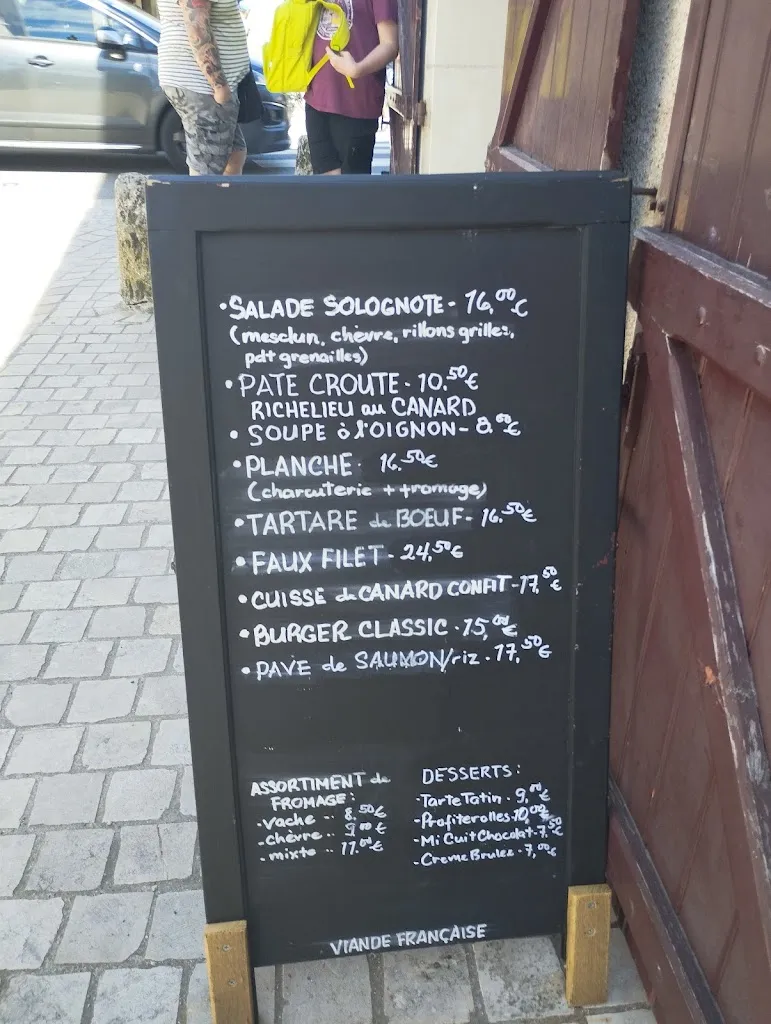 •SALADE SOLOGNOTE - 16,00€
(mesclun, chèvre, rillons grillés,
pdt grenailles)
•PATE CROUTE - 10.50€
RICHELIEU au CANARD
• SOUPE à l'OIGNON - 8.00€
•PLANCHE - 16.50€
(charcuterie + fromage)
•TARTARE de BOEUF - 16.50€
•FAUX FILET - 24,50€
•CUISSE de CANARD CONFIT - 17,50€
•BURGER CLASSIC - 15,00€
•PAVE de SAUMON/riz - 17,50€
ASSORTIMENT de
FROMAGE:
-vache - 8,50€
-chèvre - 9,00€
-mixte - 11.00€
DESSERTS:
-Tarte Tatin - 9,00€
-Profiterolles 10,00€
-Mi Cuit Chocolat - 7,50€
-Creme Brulee - 7,00€
VIANDE FRANÇAISE